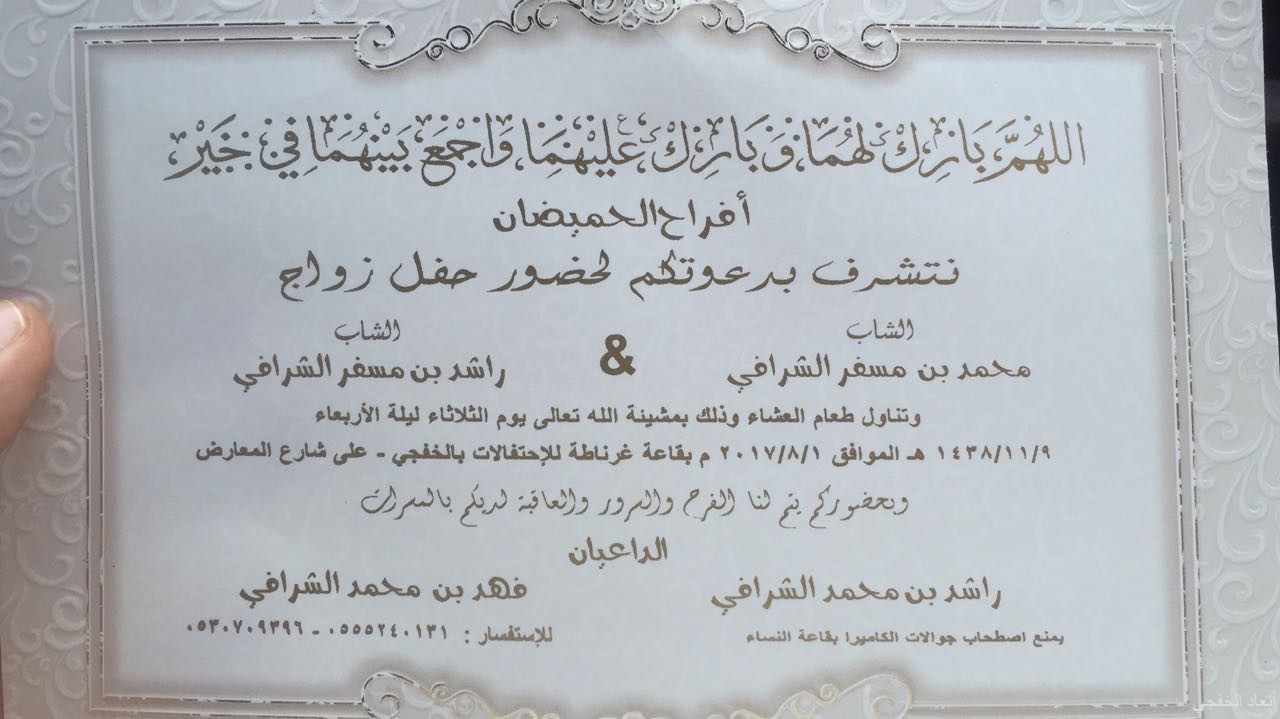 اللهُمَّ بَارِك لَهُمَا وَبَارِك عَلَيْهِمَا وَاجْمَعْ بَيْنَهُمَا فِي خَيْر
أفراح الحميضان
نتشرف بدعوتكم لحضور حفل زواج
الشاب
الشاب
محمد بن مسفر الشرافي & راشد بن مسفر الشرافي
وتناول طعام العشاء وذلك بمشيئة الله تعالى يوم الثلاثاء ليلة الأربعاء
١٤٣٨/١١/٩ هـ الموافق ٢٠١٧/٨/١ م بقاعة غرناطة للإحتفالات بالخفجي - على شارع المعارض
وبحضوركم يتم لنا الفرح والسرور والعاقبة لديكم بالمسرات
الداعيان
راشد بن محمد الشرافي
فهد بن محمد الشرافي
يمنع اصطحاب جوالات الكاميرا بقاعة النساء
للإستفسار : ٠٥٥٥٢٤٠١٣١ - ٠٥٣٠٧٠٩٣٩٦
أبعاد الخفجي